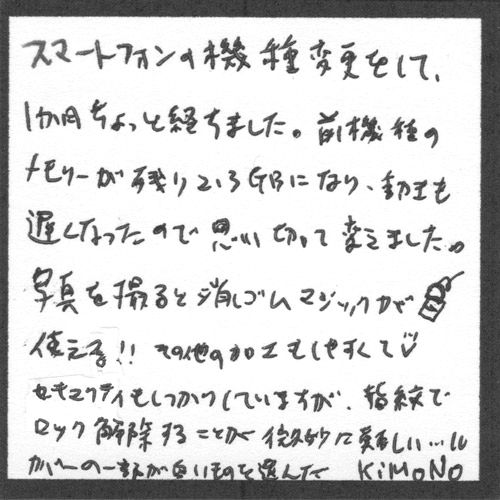 スマートフォンの機種変更をして、
1か月ちょっと経ちました。前機種の
メモリーが残り2.3GBになり、動きも
遅くなったので思い切って変えました。
写真を撮ると消しゴムマジックが
使える!! その他の加工もしやすくて♡
セキュリティもしっかりしていますが、指紋で
ロック解除することが微妙に難しい…
カバーの一番白いものを選んだ KiMONO